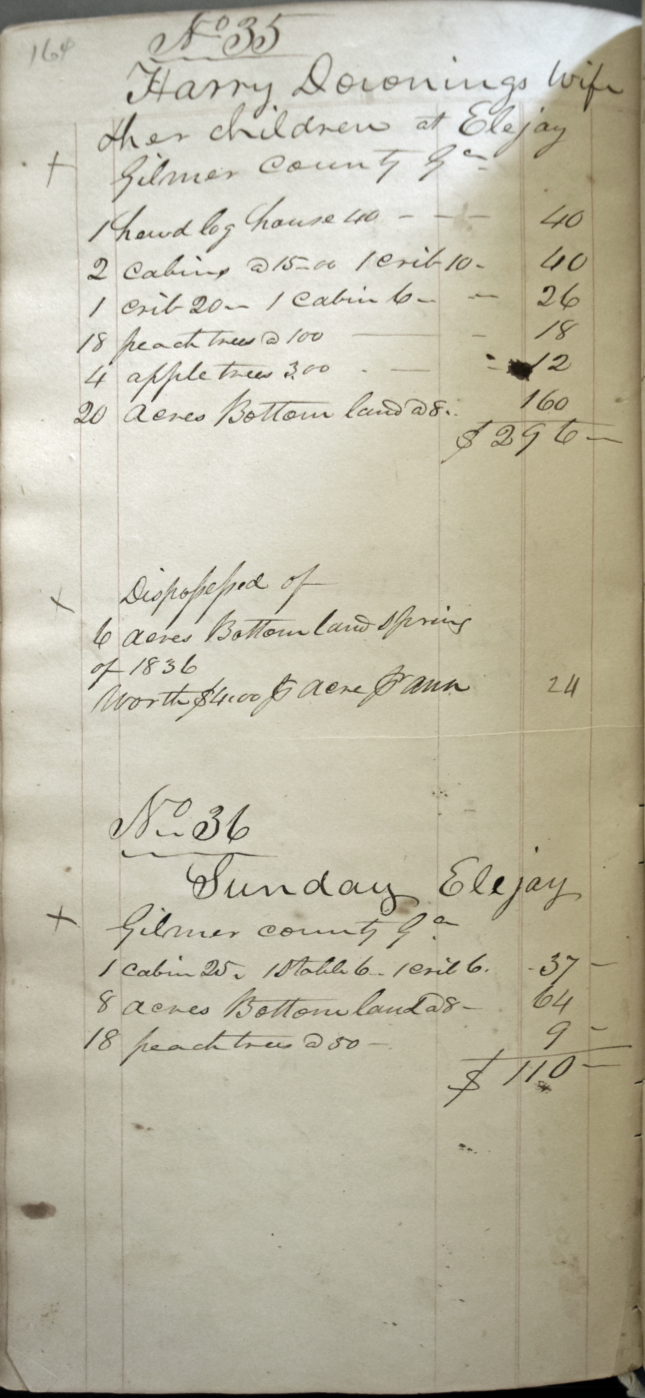 164
No 35
Harry Downings Wife
& her children at Elejay
+ Gilmer County Ga
1 hewd log house 40 - - - 40
2 cabins @ 15-00 1 crib 10- 40
1 crib 20- 1 Cabin 6- - 26
18 peach trees @ 100 - - 18
4 apple trees 300 - - - 12
20 acres Bottom land @ 8.. 160
$296-
+ Dispossessed of
6 acres Bottom land Spring
of 1836
Worth $4.00 ⅌ Acre ⅌ Ann 24
No 36
Sunday Elejay
+ Gilmer county Ga
1 cabin 25. 1 Stable 6- 1 crib 6. - 37 -
8 acres Bottom land @ 8 - 64
18 peach trees @ 50 - 9 -
$110-